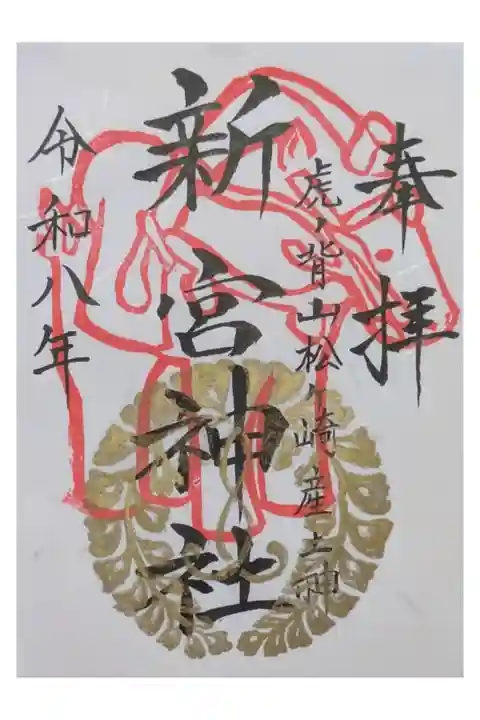 奉拝
虎ノ背山松ヶ崎産土神
新宮神社
令和八年